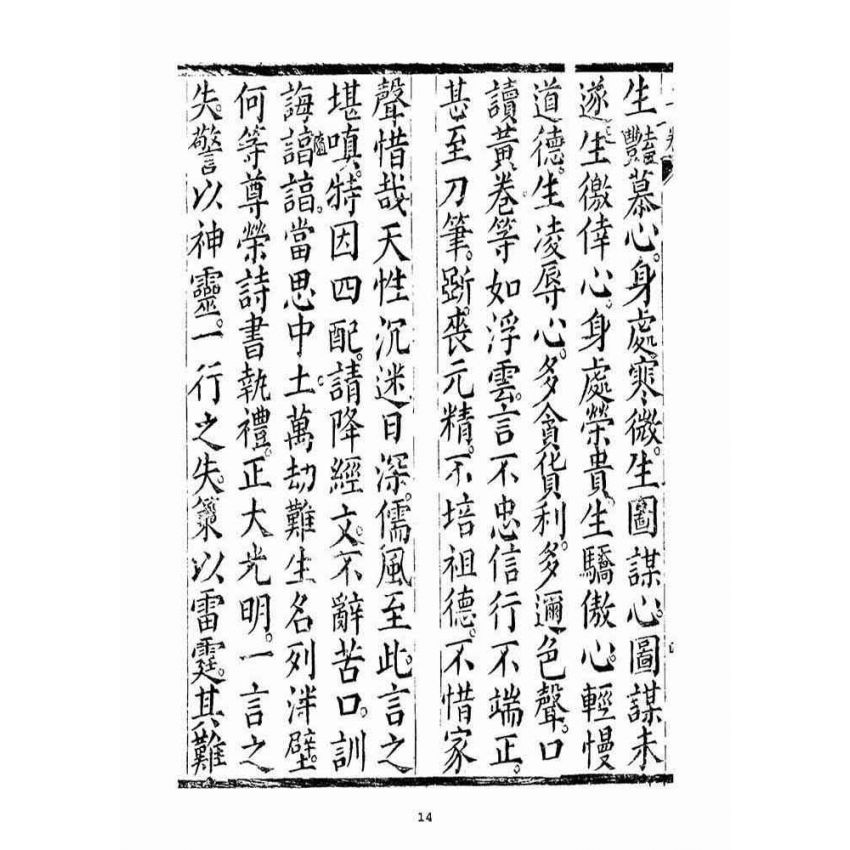 生豔慕心。身處寒微。生圖謀心。圖謀未
遂。生徼倖心。身處榮貴。生驕傲心。輕慢
道德。生凌辱心。多貪貨利。多邇色聲。口
讀黃卷。等如浮雲。言不忠信。行不端正。
甚至刀筆。斲喪元精。不培祖德。不惜家
聲。惜哉天性。沉迷日深。儒風至此。言之
堪嗔。特因四配。請降經文。不辭苦口。訓
誨諄諄。當思中土。萬劫難生。名列泮壁。
何等尊榮。詩書執禮。正大光明。一言之
失。警以神靈。一行之失。象以雷霆。其難
14